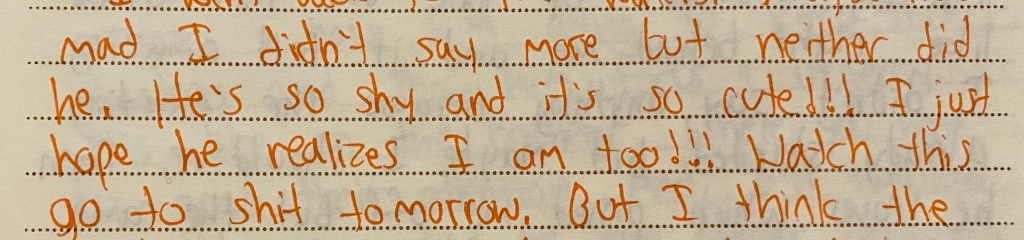 mad I didn't say more but neither did
he. He's so shy and it's so cute!!! I just
hope he realizes I am too!!! Watch this
go to shit tomorrow. But I think the